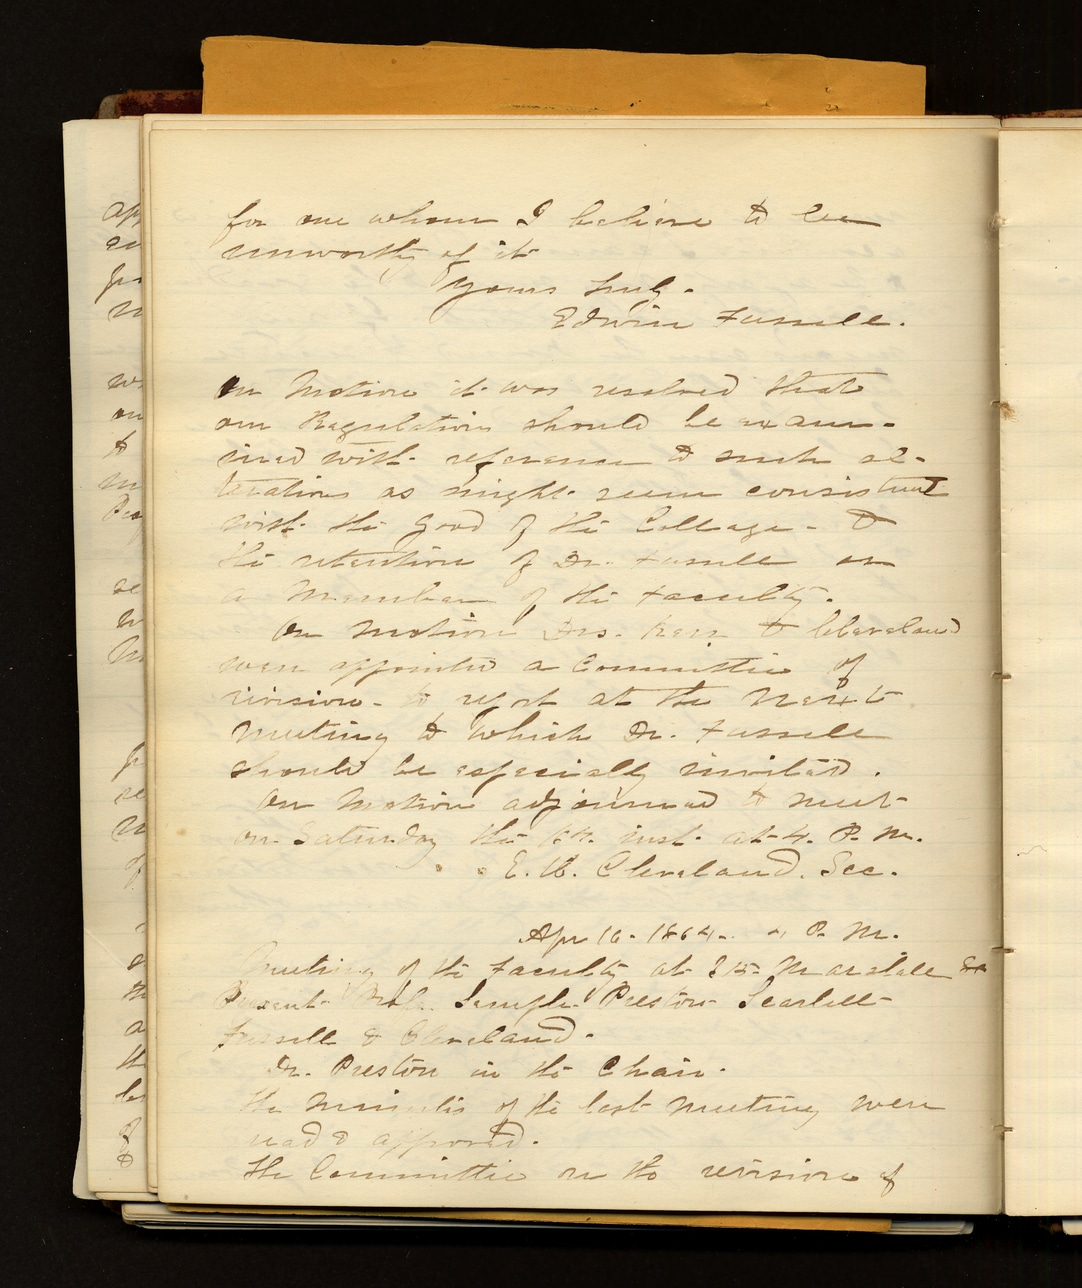 for one whom I believe to be
unworthy of it
Yours truly.
Edwin Fussell.
On Motion it was resolved that
our Regulations should be exam-
ined with reference to such al-
terations as might seem consistent
with the good of the College - &
the retention of Dr. Fussell as
a Member of the Faculty.
On Motion Drs. & Cleveland
were appointed a Committee of
revision - to report at the Next
Meeting to which Dr. Fussell
should be especially invited.
On Motion adjourned to meet
on Saturday the inst. at 4. P. M.
E. H. Cleveland. Sec.
Apr 16. 1864. 4 P. M.
Meeting of the Faculty at Marshall
Present Profs. Sample Preston Scarlett
Fussell & Cleveland.
Dr. Preston in the Chair.
The Minutes of the last Meeting were
read & approved.
The Committee on the revision of